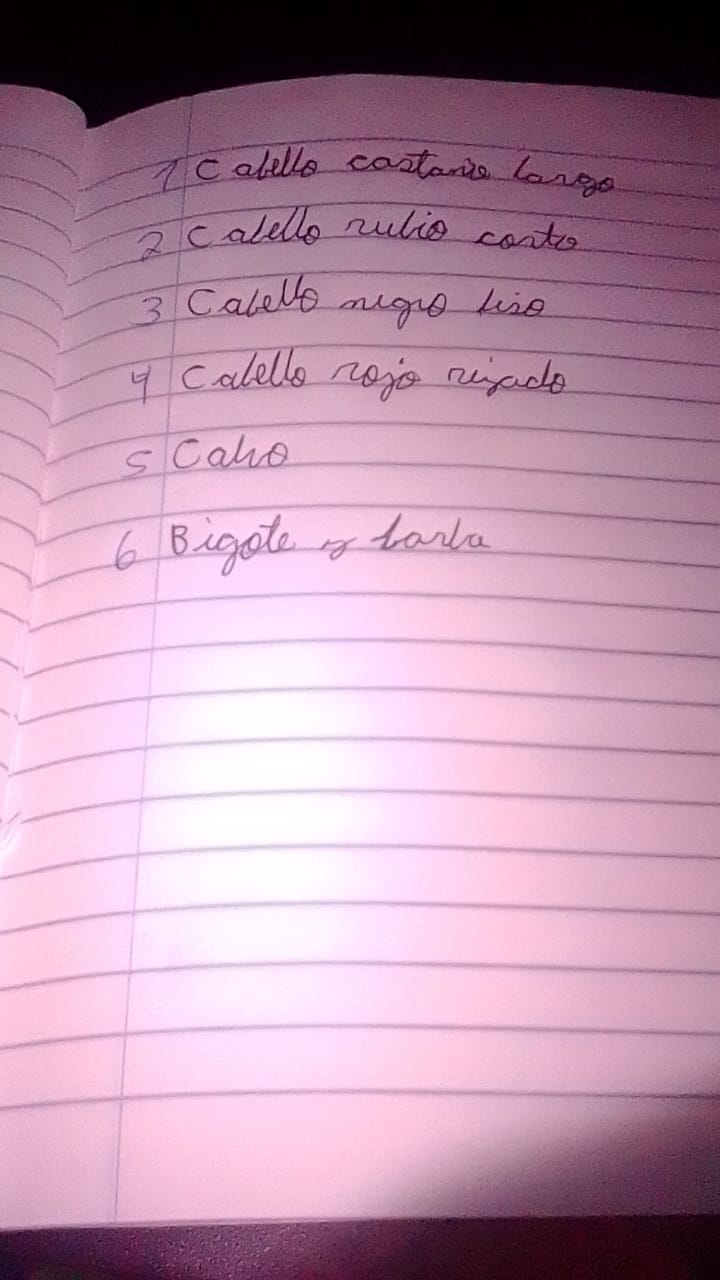 1 Cabello castaño largo
2 Cabello rubio corto
3 Cabello negro liso
4 Cabello rojo rizado
5 Calvo
6 Bigote y barba